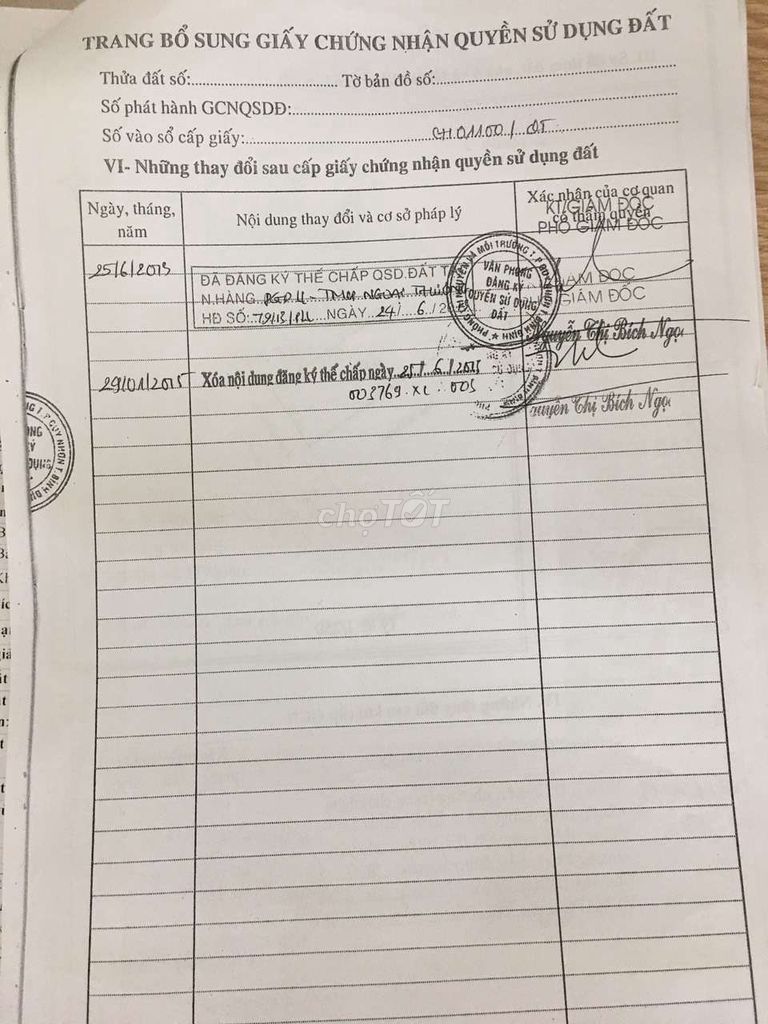 TRANG BỔ SUNG GIẤY CHỨNG NHẬN QUYỀN SỬ DỤNG ĐẤT
Thửa đất số:.................................... Tờ bản đồ số:....................................
Số phát hành GCNQSDĐ:....................................
Số vào sổ cấp giấy:.................................... CH01100/ĐT
VI- Những thay đổi sau cấp giấy chứng nhận quyền sử dụng đất
Ngày, tháng, năm
Nội dung thay đổi và cơ sở pháp lý
Xác nhận của cơ quan có thẩm quyền
KT/GIÁM ĐỐC
PHÓ GIÁM ĐỐC
25/6/2013
ĐÃ ĐĂNG KÝ THẾ CHẤP QSD.ĐẤT
N.HÀNG
NGOẠI THƯƠNG
HĐ SỐ: NGÀY 24/ 6/
VĂN PHÒNG
ĐĂNG KÝ
QUYỀN SỬ DỤNG
ĐẤT
GIÁM ĐỐC
GIÁM ĐỐC
Nguyễn Thị Bích Ngọ
29/01/2015
Xóa nội dung đăng ký thế chấp ngày 25/ 6/2015
003769.XL.003
guyễn Thị Bích Ngọ
QUY NHƠN T. BÌNH ĐỊNH
chợTỐT